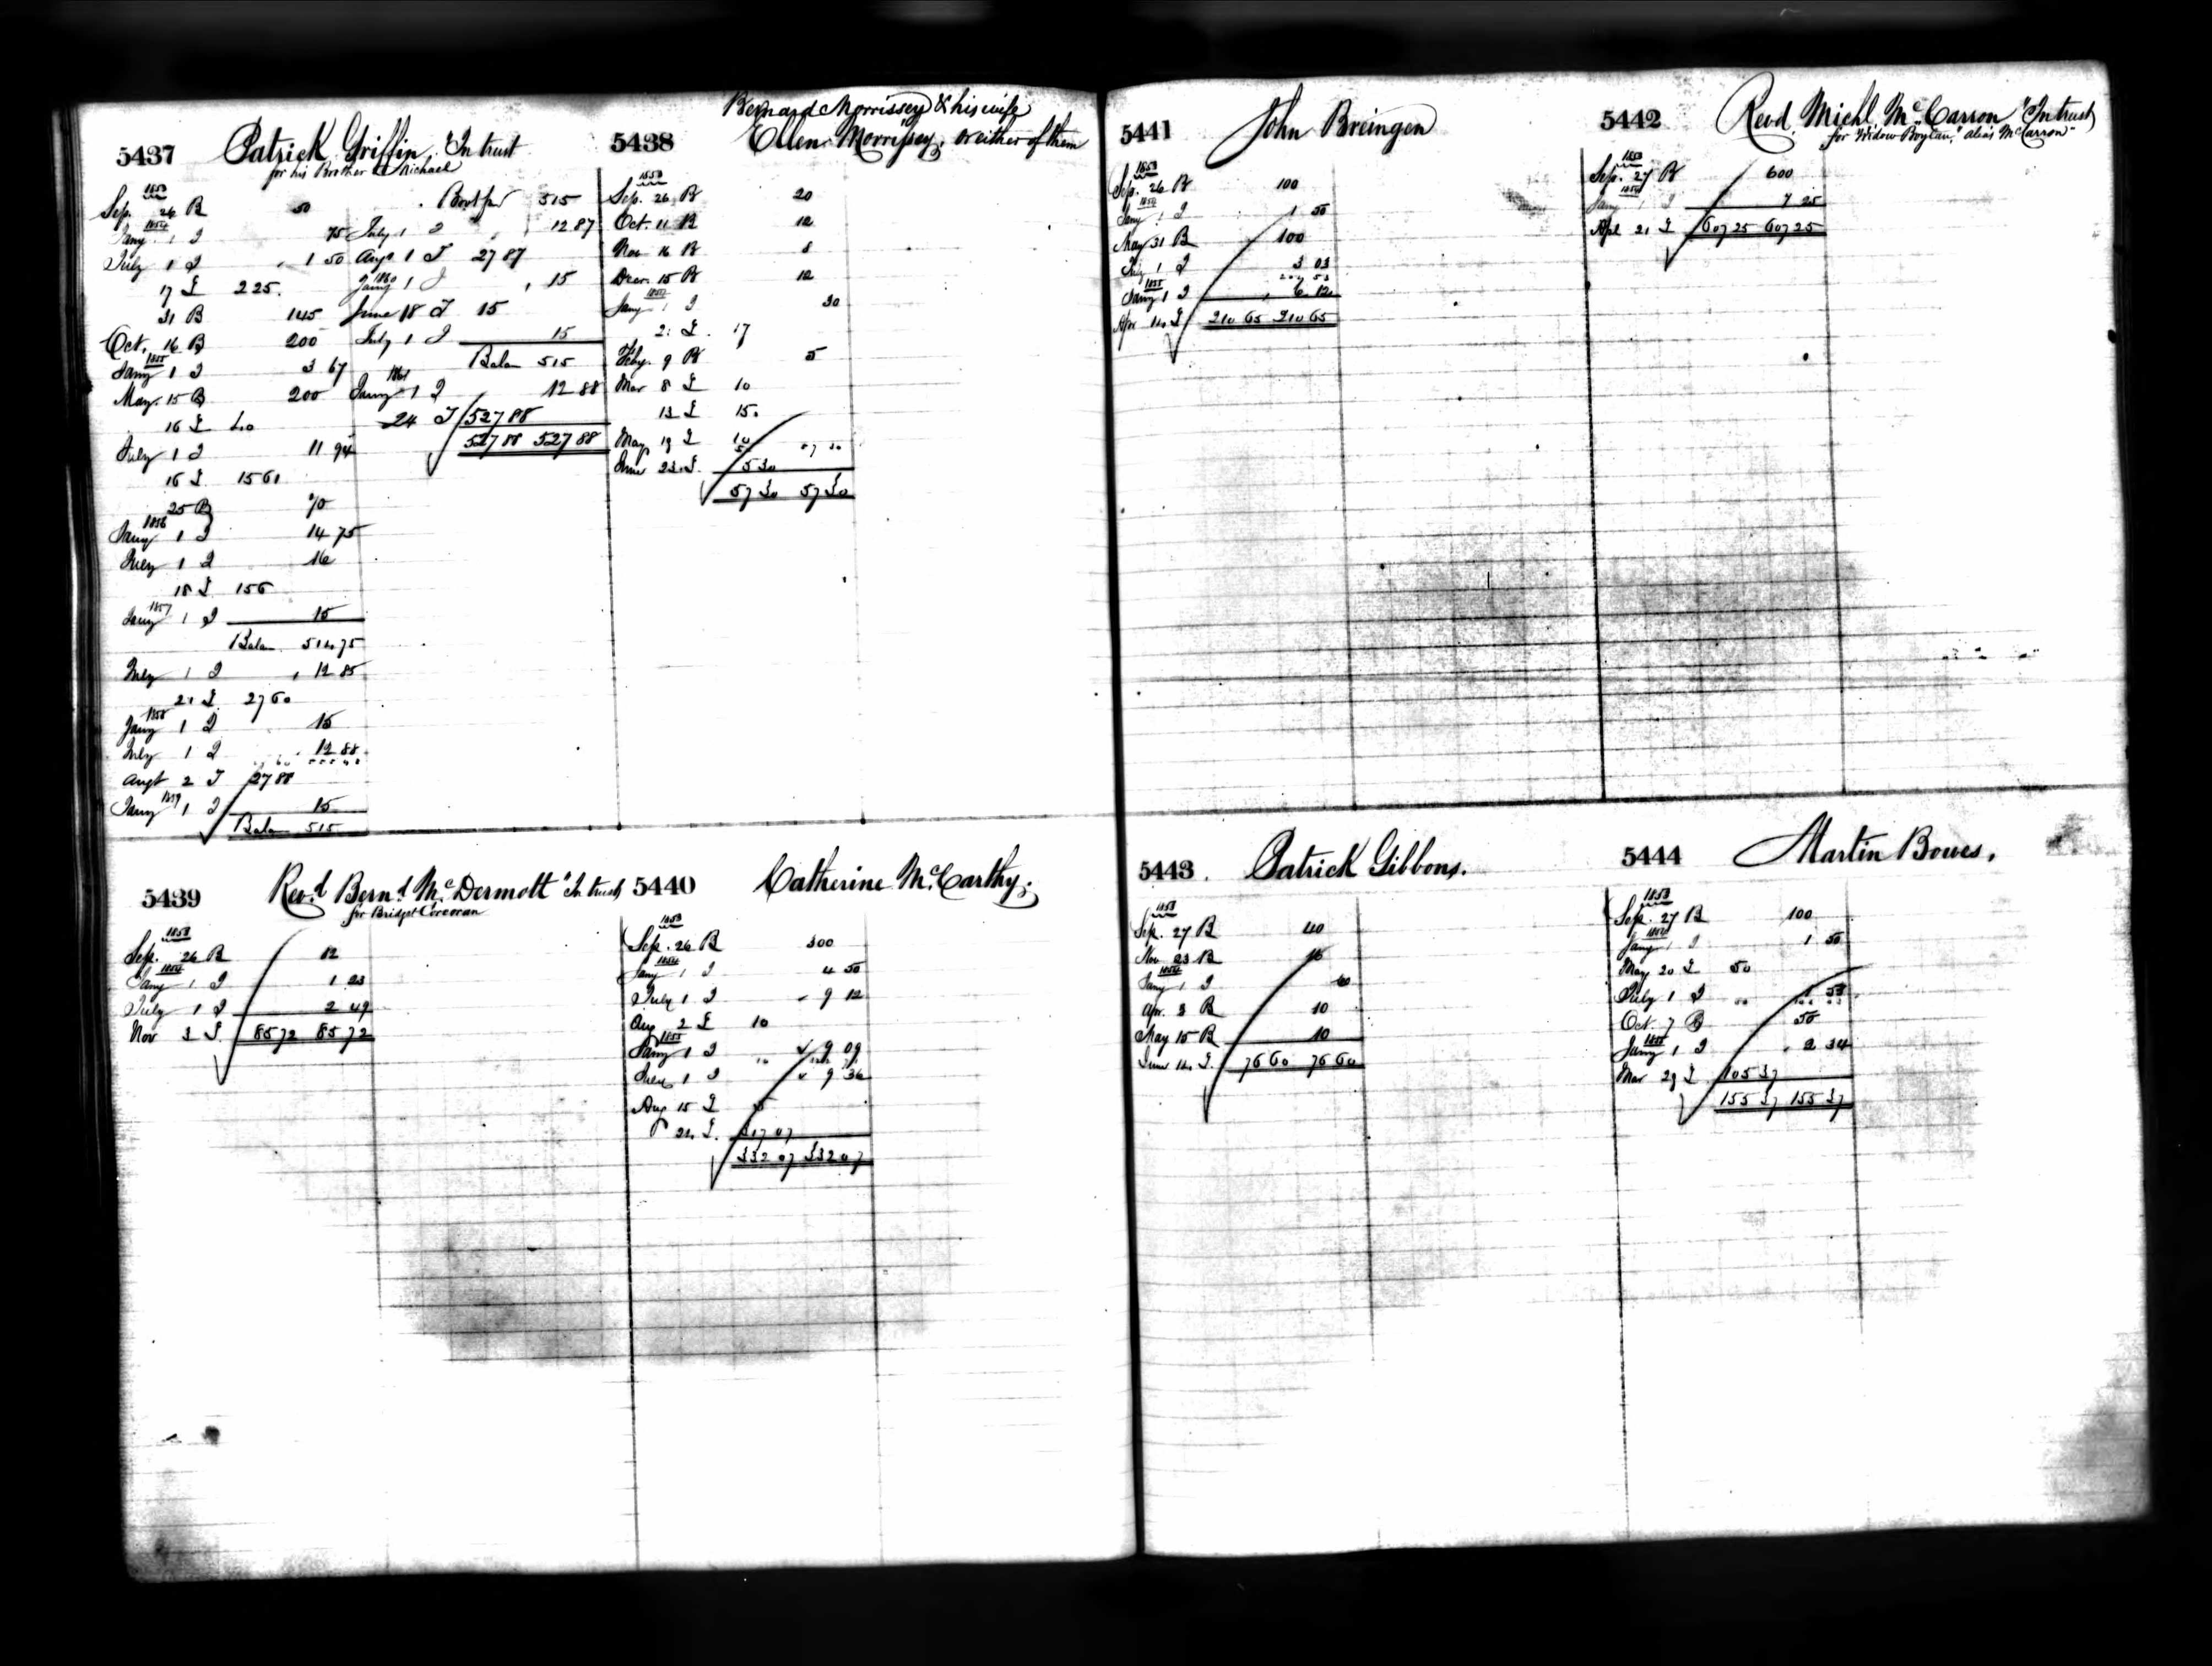 5437 Patrick Griffin "In trust
for his Brother Michael
1853
Sep. 26 B 50
1854
Jany. 1 I 75
July 1 I 1 50
17 L 225.
31 B 145
Oct. 16 B 200
1855
Jany 1 I 3 67
May. 15 B 200
16 L 40
July 1 I 11 94
16 L 15 61
25 B 70
1856
Jany 1 I 14 75
July 1 I 16
18 L
1857
Jany 1 I 15
Balan 514 75
July 1 I 12 85
21 L 27 60
1858
Jany 1 I 15
July 1 I 12 88
Augt 2 I 27 88
1859
Jany 1 I 15
Balan 515
Bot for 515
July 1 I 12 87
Augt 1 I 27 87
1860
Jany 1 I 15
June 18 I 15
July 1 I 15
Balan 515
1861
Jany 1 I 12 88
24 I 527 88
527 88 527 88
Bernard Morrissey & his wife
5438 Ellen Morrissey, or either of them
1853
Sep. 26 B 20
Oct. 11 B 12
Nov 16 B 8
Decr. 15 B 12
1854
Jany 1 I 30
21 L 17
Feby. 9 B 5
Mar 8 L 10
13 L 15
May 19 L 10
June 23 L 5 30
57 30 57 30
5439 Revd. Bernd. McDermott "In trust
for Bridget Corcoran
1853
Sep. 26 B 82
1854
Jany 1 I 1 23
July 1 I 2 49
Nov 3 L 85 72 85 72
5440 Catherine McCarthy.
1853
Sep. 26 B 300
1854
Jany 1 I 4 50
July 1 I 9 12
Aug 2 L 10
1855
Jany 1 I 9 09
July 1 I 9 36
Aug 15 L 5
24 L 317 07
332 07 332 07
5441 John Breingen
1853
Sep. 26 B 100
1854
Jany 1 I 1 50
May 31 B 100
July 1 I 3 03
1855
Jany 1 I 6 12
Apr 14 L 210 65 210 65
5442 Revd. Michl McCarron "In trust
for "Widow Boylan," alias McCarron"
1853
Sep. 27 B 600
1854
Jany 1 I 7 25
Apl 21 L 607 25 607 25
5443 Patrick Gibbons.
1853
Sep. 27 B 40
Nov 23 B 16
1854
Jany 1 I 60
Apr. 3 B 10
May 15 B 10
June 14 L 76 60 76 60
5444 Martin Bowes.
1853
Sep. 27 B 100
1854
Jany 1 I 1 50
May 20 L 50
July 1 I 1 53
Oct. 7 B 50
1855
Jany 1 I 2 34
Mar 29 L 105 37
155 37 155 37